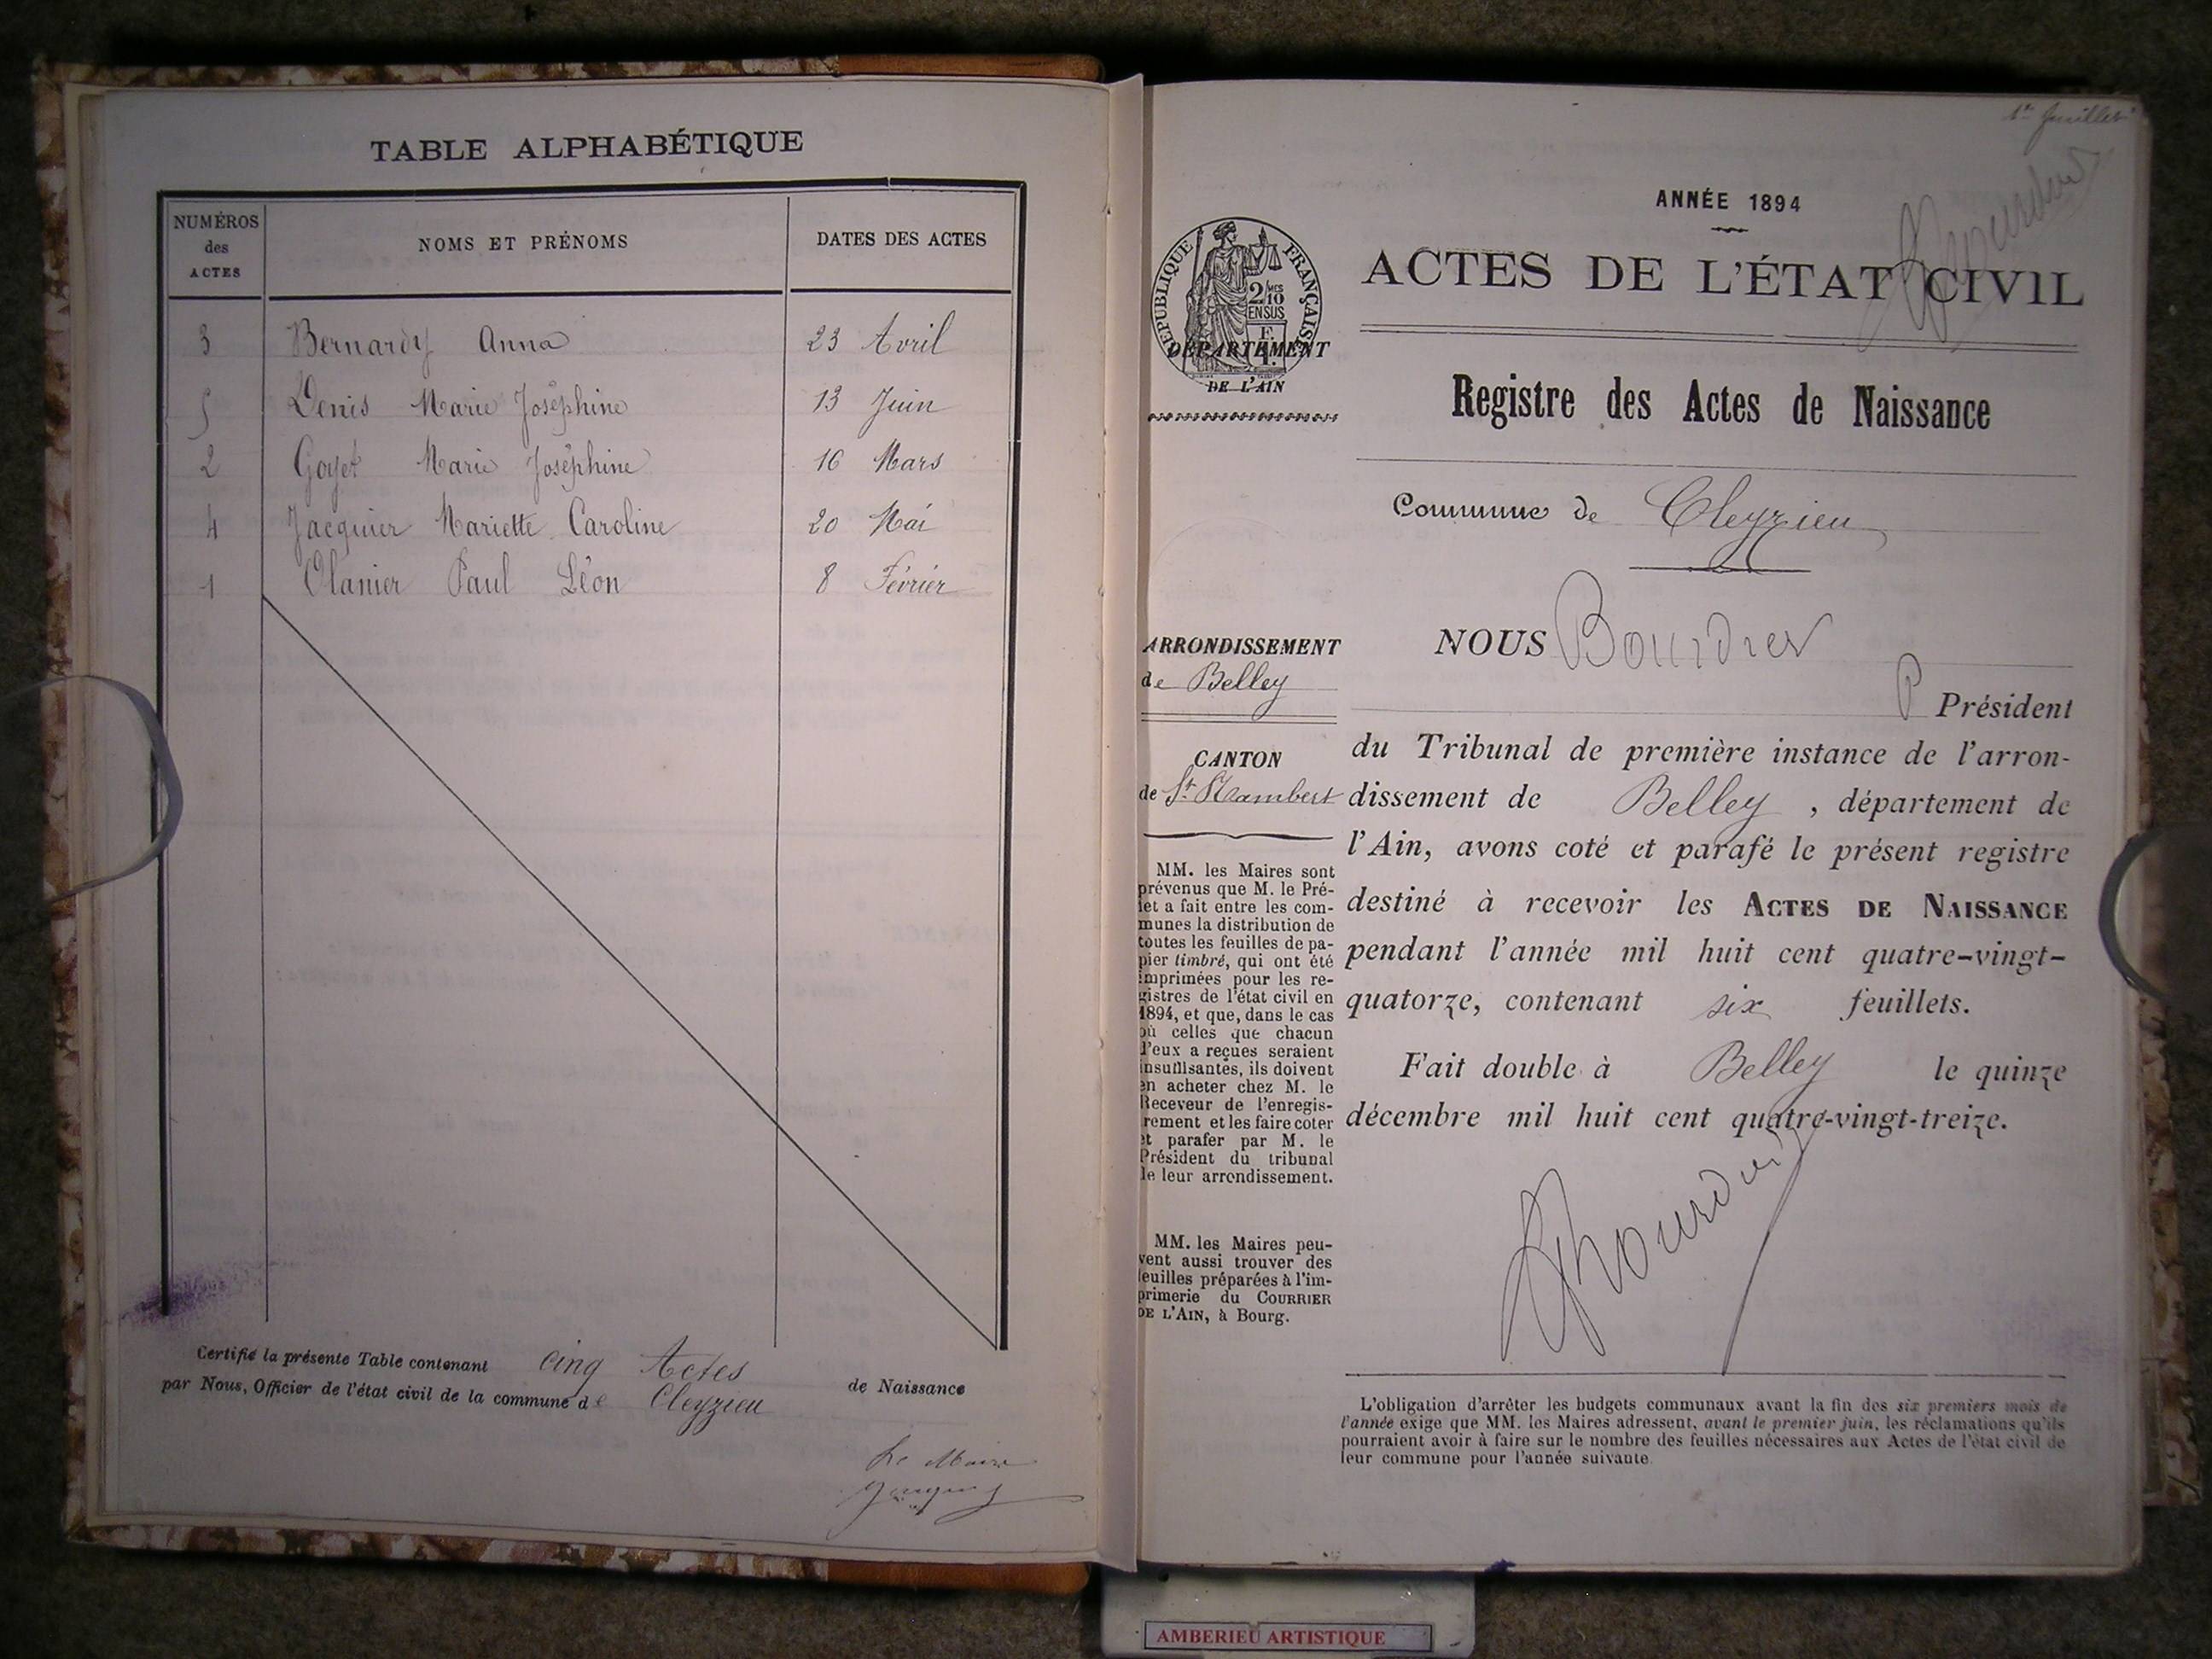 TABLE ALPHABÉTIQUE
NUMÉROS des ACTES
NOMS ET PRÉNOMS
DATES DES ACTES
3 Bernardy Anna 23 Avril
5 Denis Marie Joséphine 13 Juin
2 Goyet Marie Joséphine 16 Mars
4 Jacquier Mariette Caroline 20 Mai
1 Olanier Paul Léon 8 Février
Certifié la présente Table contenant cinq Actes de Naissance
par Nous, Officier de l'état civil de la commune de Cleyzieu
Le Maire
1er feuillet
ANNÉE 1894
ACTES DE L'ÉTAT CIVIL
RÉPUBLIQUE FRANÇAISE
2/10 MES
EN SUS
DÉPARTEMENT
DE L'AIN
Registre des Actes de Naissance
Commune de Cleyzieu
ARRONDISSEMENT
de Belley
CANTON
de St Rambert
MM. les Maires sont
prévenus que M. le Pré-
fet a fait entre les com-
munes la distribution de
toutes les feuilles de pa-
pier timbré, qui ont été
imprimées pour les re-
gistres de l'état civil en
1894, et que, dans le cas
où celles que chacun
d'eux a reçues seraient
insuffisantes, ils doivent
en acheter chez M. le
Receveur de l'enregis-
rement et les faire coter
et parafer par M. le
Président du tribunal
de leur arrondissement.
MM. les Maires peu-
vent aussi trouver des
feuilles préparées à l'im-
primerie du COURRIER
DE L'AIN, à Bourg.
NOUS Bourdier
P Président
du Tribunal de première instance de l'arron-
dissement de Belley, département de
l'Ain, avons coté et parafé le présent registre
destiné à recevoir les ACTES DE NAISSANCE
pendant l'année mil huit cent quatre-vingt-
quatorze, contenant six feuillets.
Fait double à Belley le quinze
décembre mil huit cent quatre-vingt-treize.
L'obligation d'arrêter les budgets communaux avant la fin des six premiers mois de
l'année exige que MM. les Maires adressent, avant le premier juin, les réclamations qu'ils
pourraient avoir à faire sur le nombre des feuilles nécessaires aux Actes de l'état civil de
leur commune pour l'année suivante.
AMBERIEU ARTISTIQUE